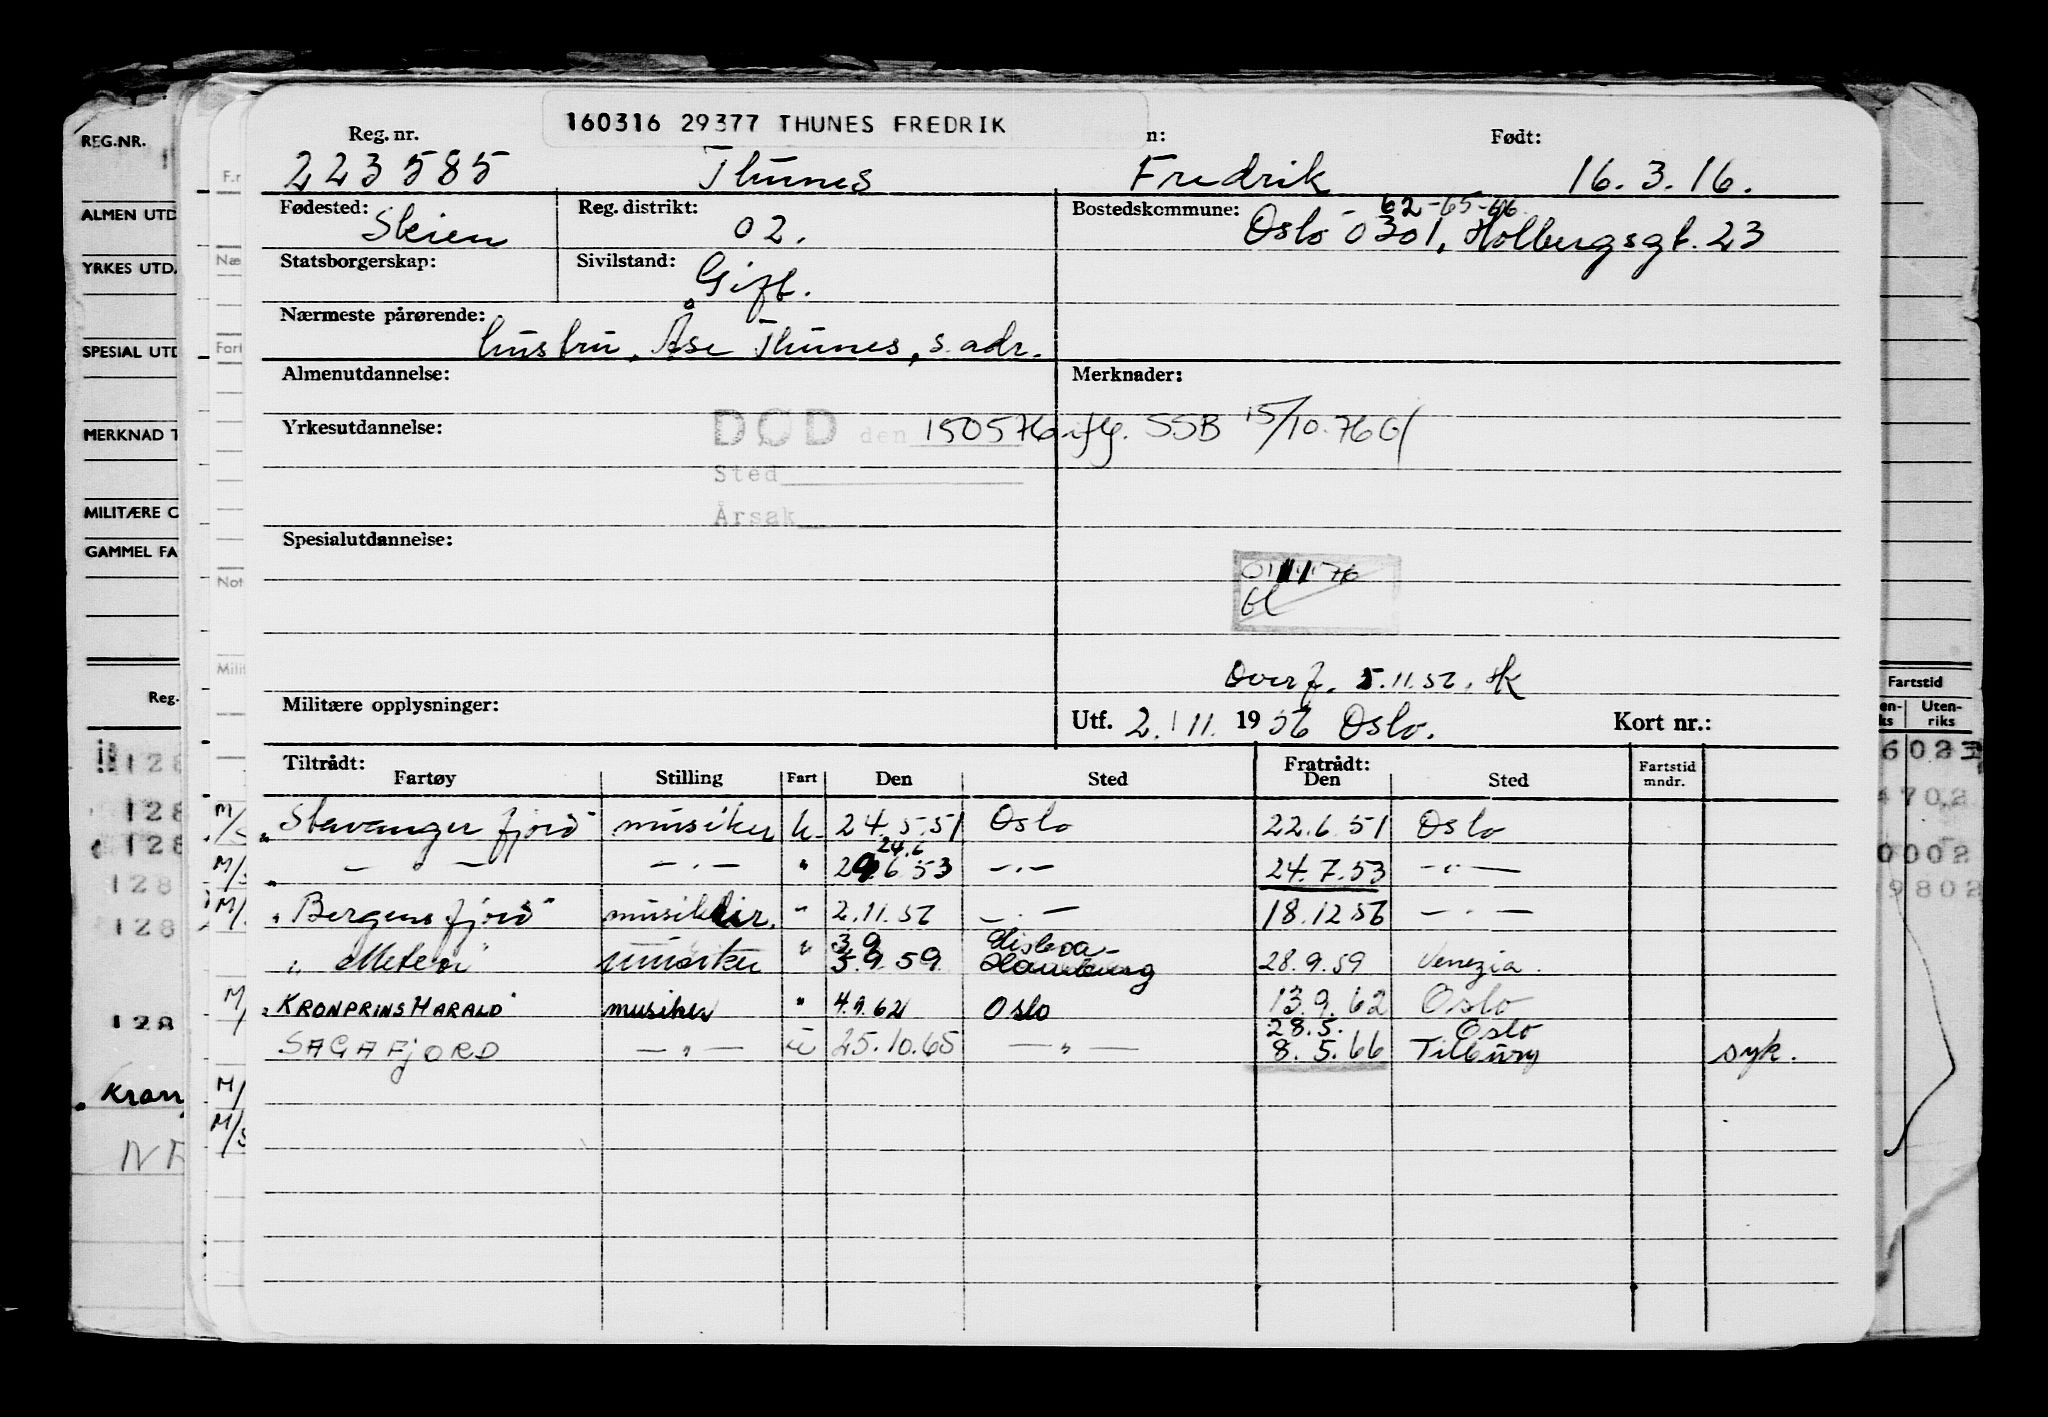 160316 29377 THUNES FREDRIK
REG.NR. Reg. nr. n: Født:
223585 Thunes Fredrik 16.3.16.
F.r
ALMEN UTD Fødested: Skien Reg. distrikt: 02. Bostedskommune: Oslo 0301, Holbergsgt. 23
62-65-66
YRKES UTD. Næ Statsborgerskap: Sivilstand: Gift.
Nærmeste pårørende:
hustru, Åse Thunes, s. adr.
SPESIAL UTD Fort
Almenutdannelse: Merknader:
MERKNAD T Yrkesutdannelse: DØD den 150576 ifg. SSB 15/10.76
Sted
MILITÆRE O Årsak
GAMMEL FA Spesialutdannelse:
Not
011176
Milit Overf. 5.11.56. Hk
Reg. Militære opplysninger: Utf. 2. 11. 1956 Oslo. Kort nr.: Fartstid
Uten-
riks
Tiltrådt: Fratrådt:
Fartøy Stilling Fart Den Sted Den Sted Fartstid mndr.
M/S "Stavangerfjord" musiker u. 24.5.51 Oslo 22.6.51 Oslo
24.6
— " — — " — " 29.6.53 — " — 24.7.53 — " —
"Bergensfjord" musiker. " 2.11.56 — " — 18.12.56 — " —
3.9
"Meteor" musiker " 5.9.59 Hamburg 28.9.59 Venezia.
"KRONPRINS HARALD" musiker " 4.9.62 Oslo 13.9.62 Oslo
28.5. Oslo
SAGAFJORD — " — u 25.10.65 — " — 8.5.66 Tilbury syk.
Kron